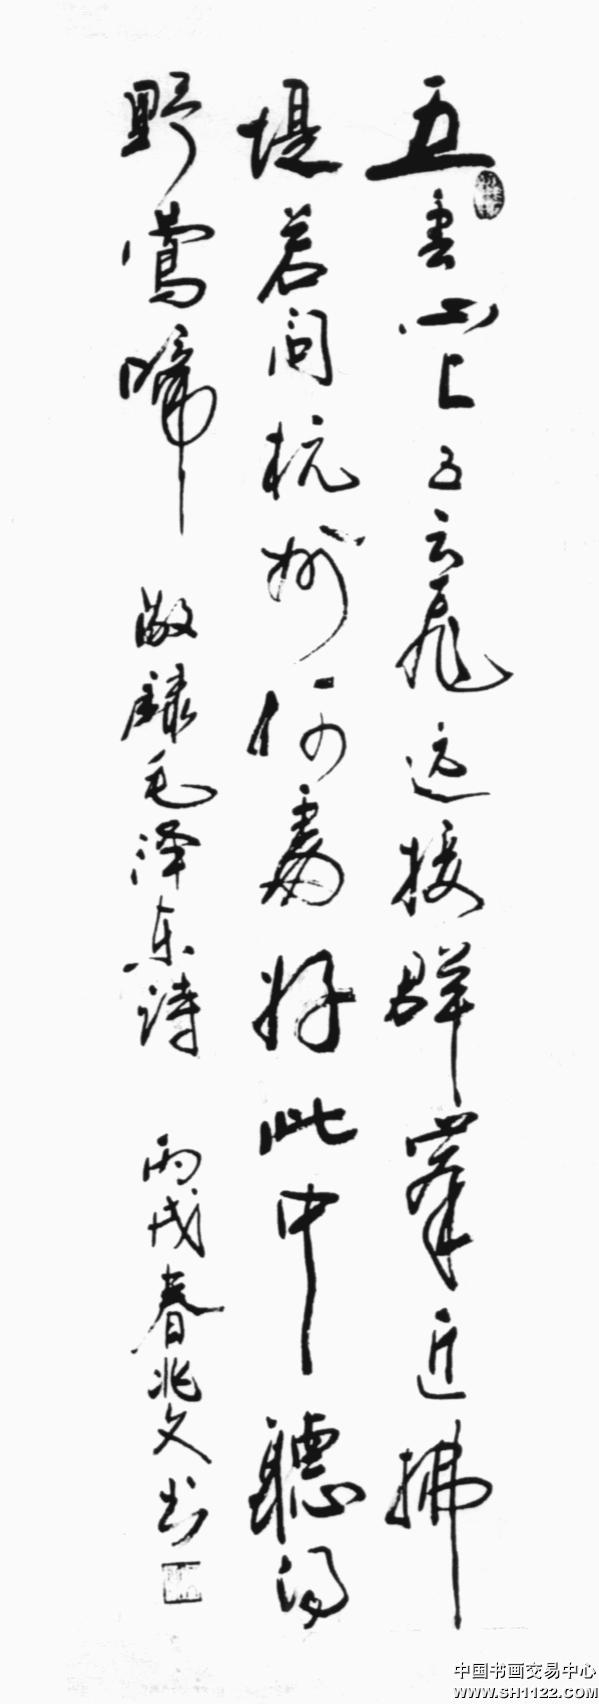 五雲山上五云飛远接群峯近拂
堤若问杭州何處好此中聽得
野鶯啼 敬録毛泽东诗 丙戌春兆文书
中国书画交易中心
www.SH1122.COM